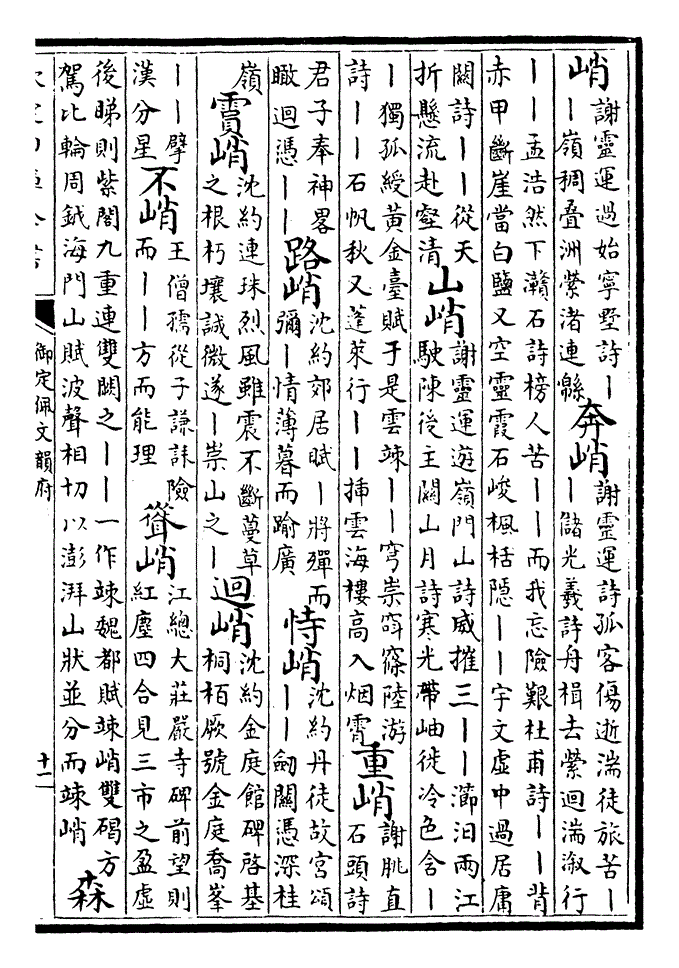 峭謝靈運過始寧墅詩丨
丨嶺稠叠洲縈渚連緜
奔峭謝靈運詩孤客傷逝湍徒旅苦丨
丨儲光羲詩舟楫去縈迴湍溆行
丨丨孟浩然下灨石詩榜人苦丨丨而我忘險艱杜甫詩丨丨背
赤甲斷崖當白鹽又空靈霞石峻楓栝隱丨丨宇文虛中過居庸
闕詩丨丨從天
折懸流赴壑清
山峭謝靈運遊嶺門山詩威摧三丨丨瀄汩兩江
駛陳後主關山月詩寒光帶岫徙冷色含丨
丨獨孤綬黃金臺賦于是雲竦丨丨穹崇窅篠陸游
詩丨丨石帆秋又蓬萊行丨丨揷雲海樓高入烟霄
重峭謝朓直
石頭詩
君子奉神畧
瞰迴憑丨丨
路峭沈約郊居賦丨將殫而
彌丨情薄暮而踰廣
恃峭沈約丹徒故宮頌
丨丨劒關憑深桂
嶺
霣峭沈約連珠烈風雖震不斷蔓草
之根朽壤誠微遂丨崇山之丨
迴峭沈約金庭館碑啓基
桐栢厥號金庭喬峯
丨丨擘
漢分星
不峭王僧孺從子謙誄險
而丨丨方而能理
聳峭江總大莊嚴寺碑前望則
紅塵四合見三市之盈虛
後睇則紫閣九重連雙闕之丨丨一作竦魏都賦竦峭雙碣方
駕比輪周鉞海門山賦波聲相切以澎湃山狀並分而竦峭
森
御定佩文韻府
十一